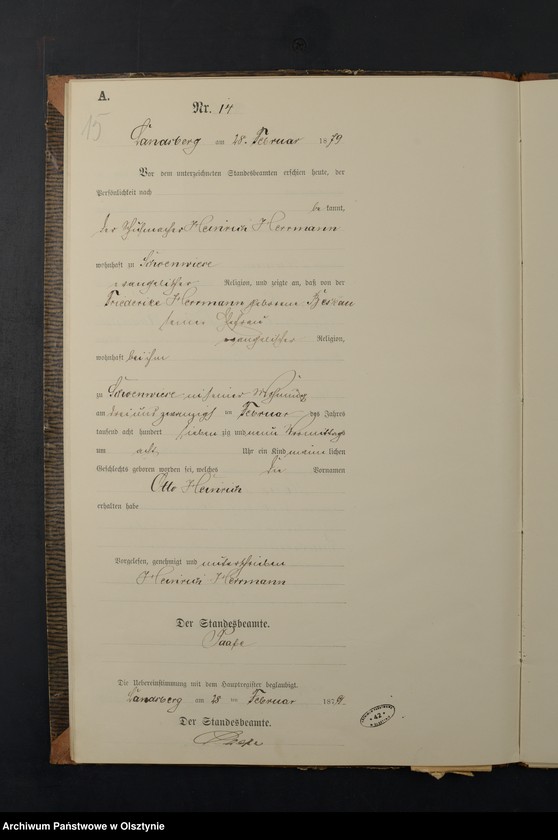 A.
15
Nr. 14
am 28. Februar 1879
Vor dem unterzeichneten Standesbeamten erschien heute, der
Persönlichkeit nach
be kannt,
der Heinrich Herrmann
wohnhaft zu Schoenwiese
evangelischer Religion, und zeigte an, daß von der
Friederike Herrmann geborene
seiner Ehefrau
evangelischer Religion,
wohnhaft bei ihm
zu Schoenwiese in seiner Wohnung
am drei und zwanzigsten Februar des Jahres
tausend acht hundert sieben zig und neun Vormittags
um acht Uhr ein Kind männlichen
Geschlechts geboren worden sei, welches die Vornamen
Otto Heinrich
erhalten habe
Vorgelesen, genehmigt und unterschrieben
Heinrich Herrmann
Der Standesbeamte.
Die Uebereinstimmung mit dem Hauptregister beglaubigt.
am 28 ten Februar 1879.
Der Standesbeamte.
42
Archiwum Państwowe w Olsztynie